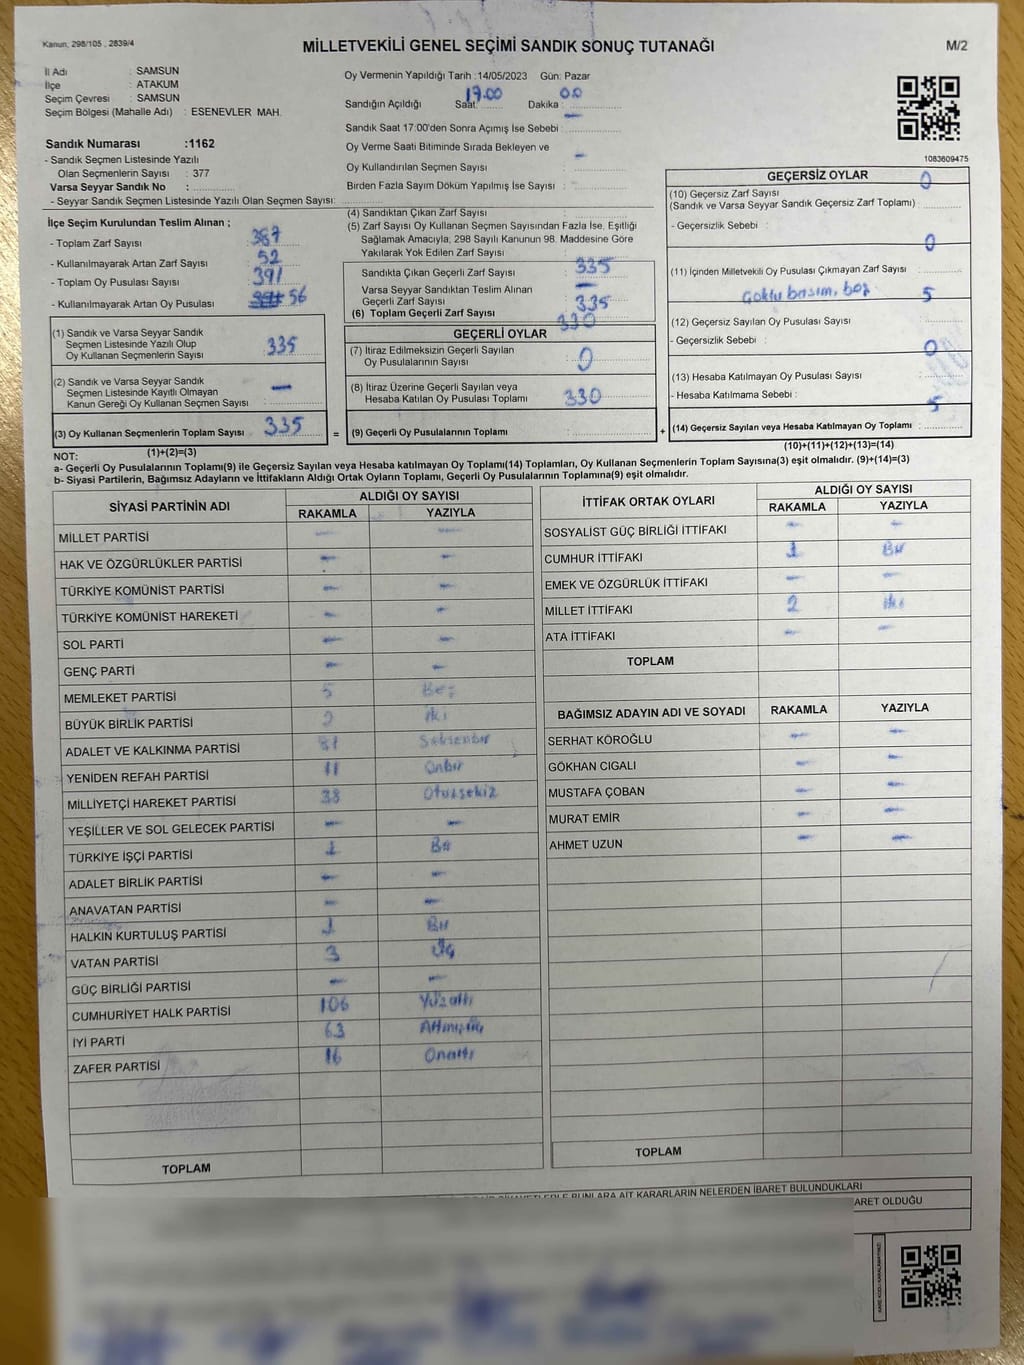 Kanun, 298/105 , 2839/4
MİLLETVEKİLİ GENEL SEÇİMİ SANDIK SONUÇ TUTANAĞI
M/2
İl Adı : SAMSUN
İlçe : ATAKUM
Seçim Çevresi : SAMSUN
Seçim Bölgesi (Mahalle Adı) : ESENEVLER MAH.
Oy Vermenin Yapıldığı Tarih :14/05/2023 Gün: Pazar
Sandığın Açıldığı Saat: 17.00 Dakika : 00
Sandık Saat 17:00'den Sonra Açımış İse Sebebi : —
Oy Verme Saati Bitiminde Sırada Bekleyen ve
Oy Kullandırılan Seçmen Sayısı : —
Birden Fazla Sayım Döküm Yapılmış İse Sayısı :
1083609475
Sandık Numarası :1162
- Sandık Seçmen Listesinde Yazılı
Olan Seçmenlerin Sayısı : 377
Varsa Seyyar Sandık No :
- Seyyar Sandık Seçmen Listesinde Yazılı Olan Seçmen Sayısı:
İlçe Seçim Kurulundan Teslim Alınan ;
- Toplam Zarf Sayısı : 387
- Kullanılmayarak Artan Zarf Sayısı : 52
- Toplam Oy Pusulası Sayısı : 391
- Kullanılmayarak Artan Oy Pusulası : 56
(1) Sandık ve Varsa Seyyar Sandık
Seçmen Listesinde Yazılı Olup
Oy Kullanan Seçmenlerin Sayısı : 335
(2) Sandık ve Varsa Seyyar Sandık
Seçmen Listesinde Kayıtlı Olmayan
Kanun Gereği Oy Kullanan Seçmen Sayısı : —
(3) Oy Kullanan Seçmenlerin Toplam Sayısı : 335
(1)+(2)=(3)
(4) Sandıktan Çıkan Zarf Sayısı :
(5) Zarf Sayısı Oy Kullanan Seçmen Sayısından Fazla İse, Eşitliği
Sağlamak Amacıyla, 298 Sayılı Kanunun 98. Maddesine Göre
Yakılarak Yok Edilen Zarf Sayısı :
Sandıkta Çıkan Geçerli Zarf Sayısı : 335
Varsa Seyyar Sandıktan Teslim Alınan
Geçerli Zarf Sayısı : —
(6) Toplam Geçerli Zarf Sayısı : 335
330
GEÇERLİ OYLAR
(7) İtiraz Edilmeksizin Geçerli Sayılan
Oy Pusulalarının Sayısı : 0
(8) İtiraz Üzerine Geçerli Sayılan veya
Hesaba Katılan Oy Pusulası Toplamı : 330
= (9) Geçerli Oy Pusulalarının Toplamı :
GEÇERSİZ OYLAR
(10) Geçersiz Zarf Sayısı 0
(Sandık ve Varsa Seyyar Sandık Geçersiz Zarf Toplamı) :
- Geçersizlik Sebebi :
0
(11) İçinden Milletvekili Oy Pusulası Çıkmayan Zarf Sayısı :
Çoklu basım, boş 5
(12) Geçersiz Sayılan Oy Pusulası Sayısı :
- Geçersizlik Sebebi : 0
(13) Hesaba Katılmayan Oy Pusulası Sayısı :
- Hesaba Katılmama Sebebi :
5
+ (14) Geçersiz Sayılan veya Hesaba Katılmayan Oy Toplamı :
(10)+(11)+(12)+(13)=(14)
NOT:
a- Geçerli Oy Pusulalarının Toplamı(9) ile Geçersiz Sayılan veya Hesaba katılmayan Oy Toplamı(14) Toplamları, Oy Kullanan Seçmenlerin Toplam Sayısına(3) eşit olmalıdır. (9)+(14)=(3)
b- Siyasi Partilerin, Bağımsız Adayların ve İttifakların Aldığı Ortak Oyların Toplamı, Geçerli Oy Pusulalarının Toplamına(9) eşit olmalıdır.
SİYASİ PARTİNİN ADI ALDIĞI OY SAYISI
RAKAMLA YAZIYLA
MİLLET PARTİSİ — —
HAK VE ÖZGÜRLÜKLER PARTİSİ — —
TÜRKİYE KOMÜNİST PARTİSİ — —
TÜRKİYE KOMÜNİST HAREKETİ — —
SOL PARTİ — —
GENÇ PARTİ — —
MEMLEKET PARTİSİ 5 Beş
BÜYÜK BİRLİK PARTİSİ 2 iki
ADALET VE KALKINMA PARTİSİ 81 Seksenbir
YENİDEN REFAH PARTİSİ 11 Onbir
MİLLİYETÇİ HAREKET PARTİSİ 38 Otuzsekiz
YEŞİLLER VE SOL GELECEK PARTİSİ — —
TÜRKİYE İŞÇİ PARTİSİ 1 Bir
ADALET BİRLİK PARTİSİ — —
ANAVATAN PARTİSİ — —
HALKIN KURTULUŞ PARTİSİ 1 Bir
VATAN PARTİSİ 3 Üç
GÜÇ BİRLİĞİ PARTİSİ — —
CUMHURİYET HALK PARTİSİ 106 Yüzaltı
İYİ PARTİ 63 Altmışüç
ZAFER PARTİSİ 16 Onaltı
TOPLAM
İTTİFAK ORTAK OYLARI ALDIĞI OY SAYISI
RAKAMLA YAZIYLA
SOSYALİST GÜÇ BİRLİĞİ İTTİFAKI — —
CUMHUR İTTİFAKI 1 Bir
EMEK VE ÖZGÜRLÜK İTTİFAKI — —
MİLLET İTTİFAKI 2 iki
ATA İTTİFAKI — —
TOPLAM
BAĞIMSIZ ADAYIN ADI VE SOYADI RAKAMLA YAZIYLA
SERHAT KÖROĞLU — —
GÖKHAN CIGALI — —
MUSTAFA ÇOBAN — —
MURAT EMİR — —
AHMET UZUN — —
TOPLAM
BUNLARA AİT KARARLARIN NELERDEN İBARET BULUNDUKLARI
OLDUĞU